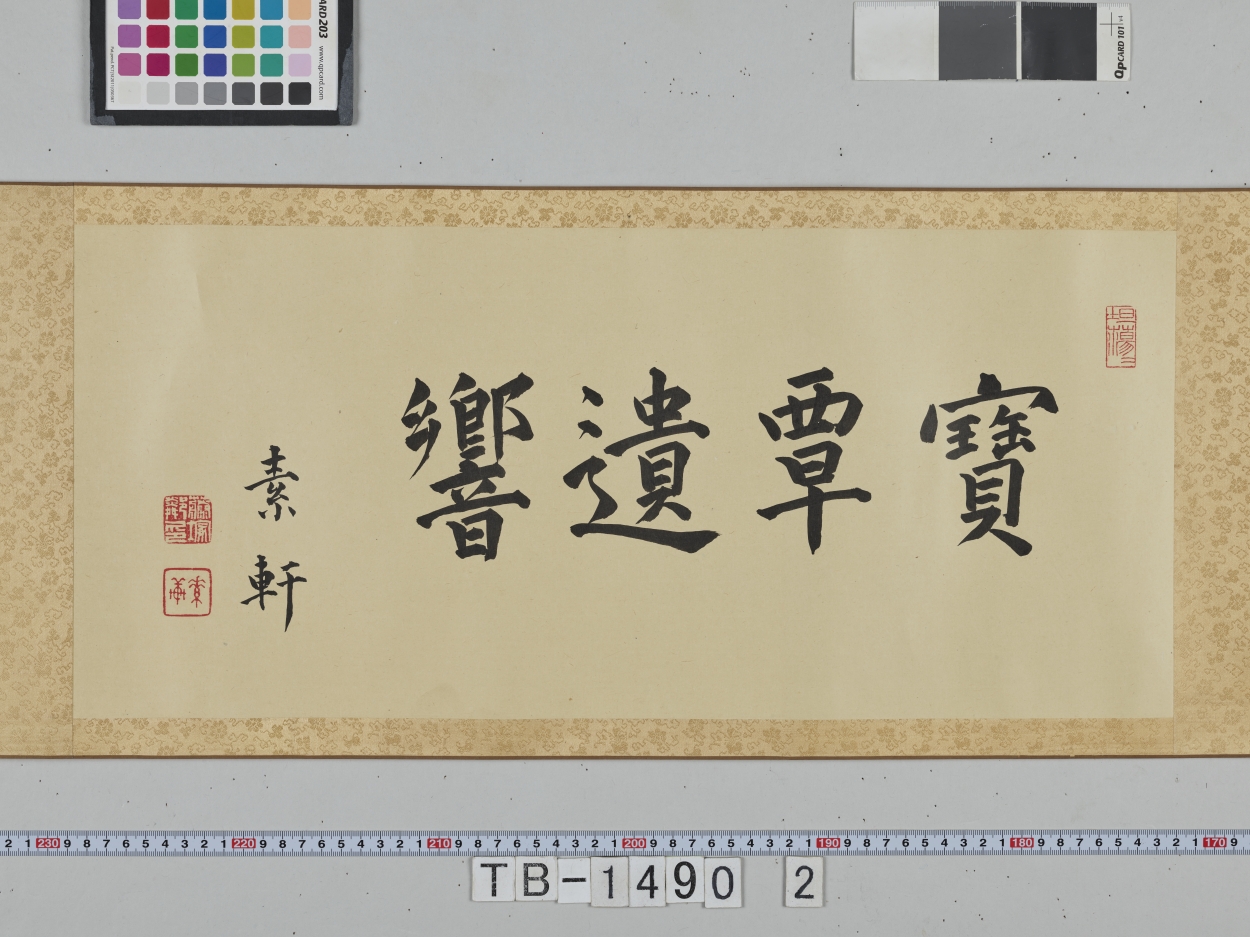 寶覃遺響
素軒
坦蕩
素軒
TB-1490 2
QPCARD 101 v4
CARD 203
www.qpcard.com
2 1 230 9 8 7 6 5 4 3 2 1 220 9 8 7 6 5 4 3 2 1 210 9 8 7 6 5 4 3 2 1 200 9 8 7 6 5 4 3 2 1 190 9 8 7 6 5 4 3 2 1 180 9 8 7 6 5 4 3 2 1 170 9